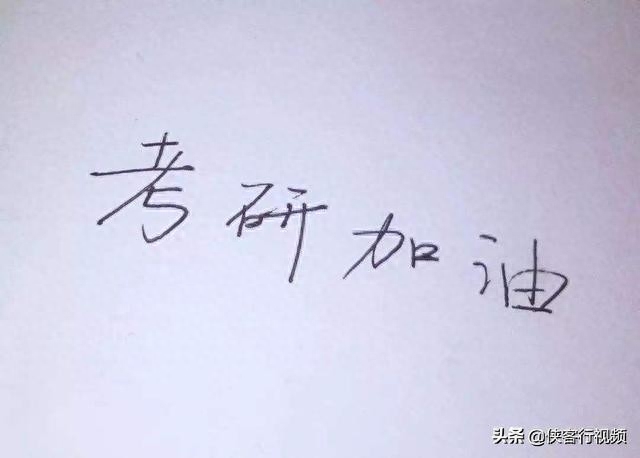 考研加油
头条 @侠客行视频